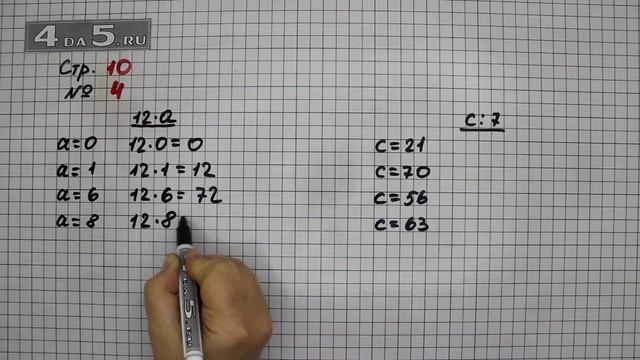 4 DA 5.RU
Стр. 10
№ 4
12·a
a=0 12·0=0
a=1 12·1=12
a=6 12·6=72
a=8 12·8
c:7
c=21
c=70
c=56
c=63